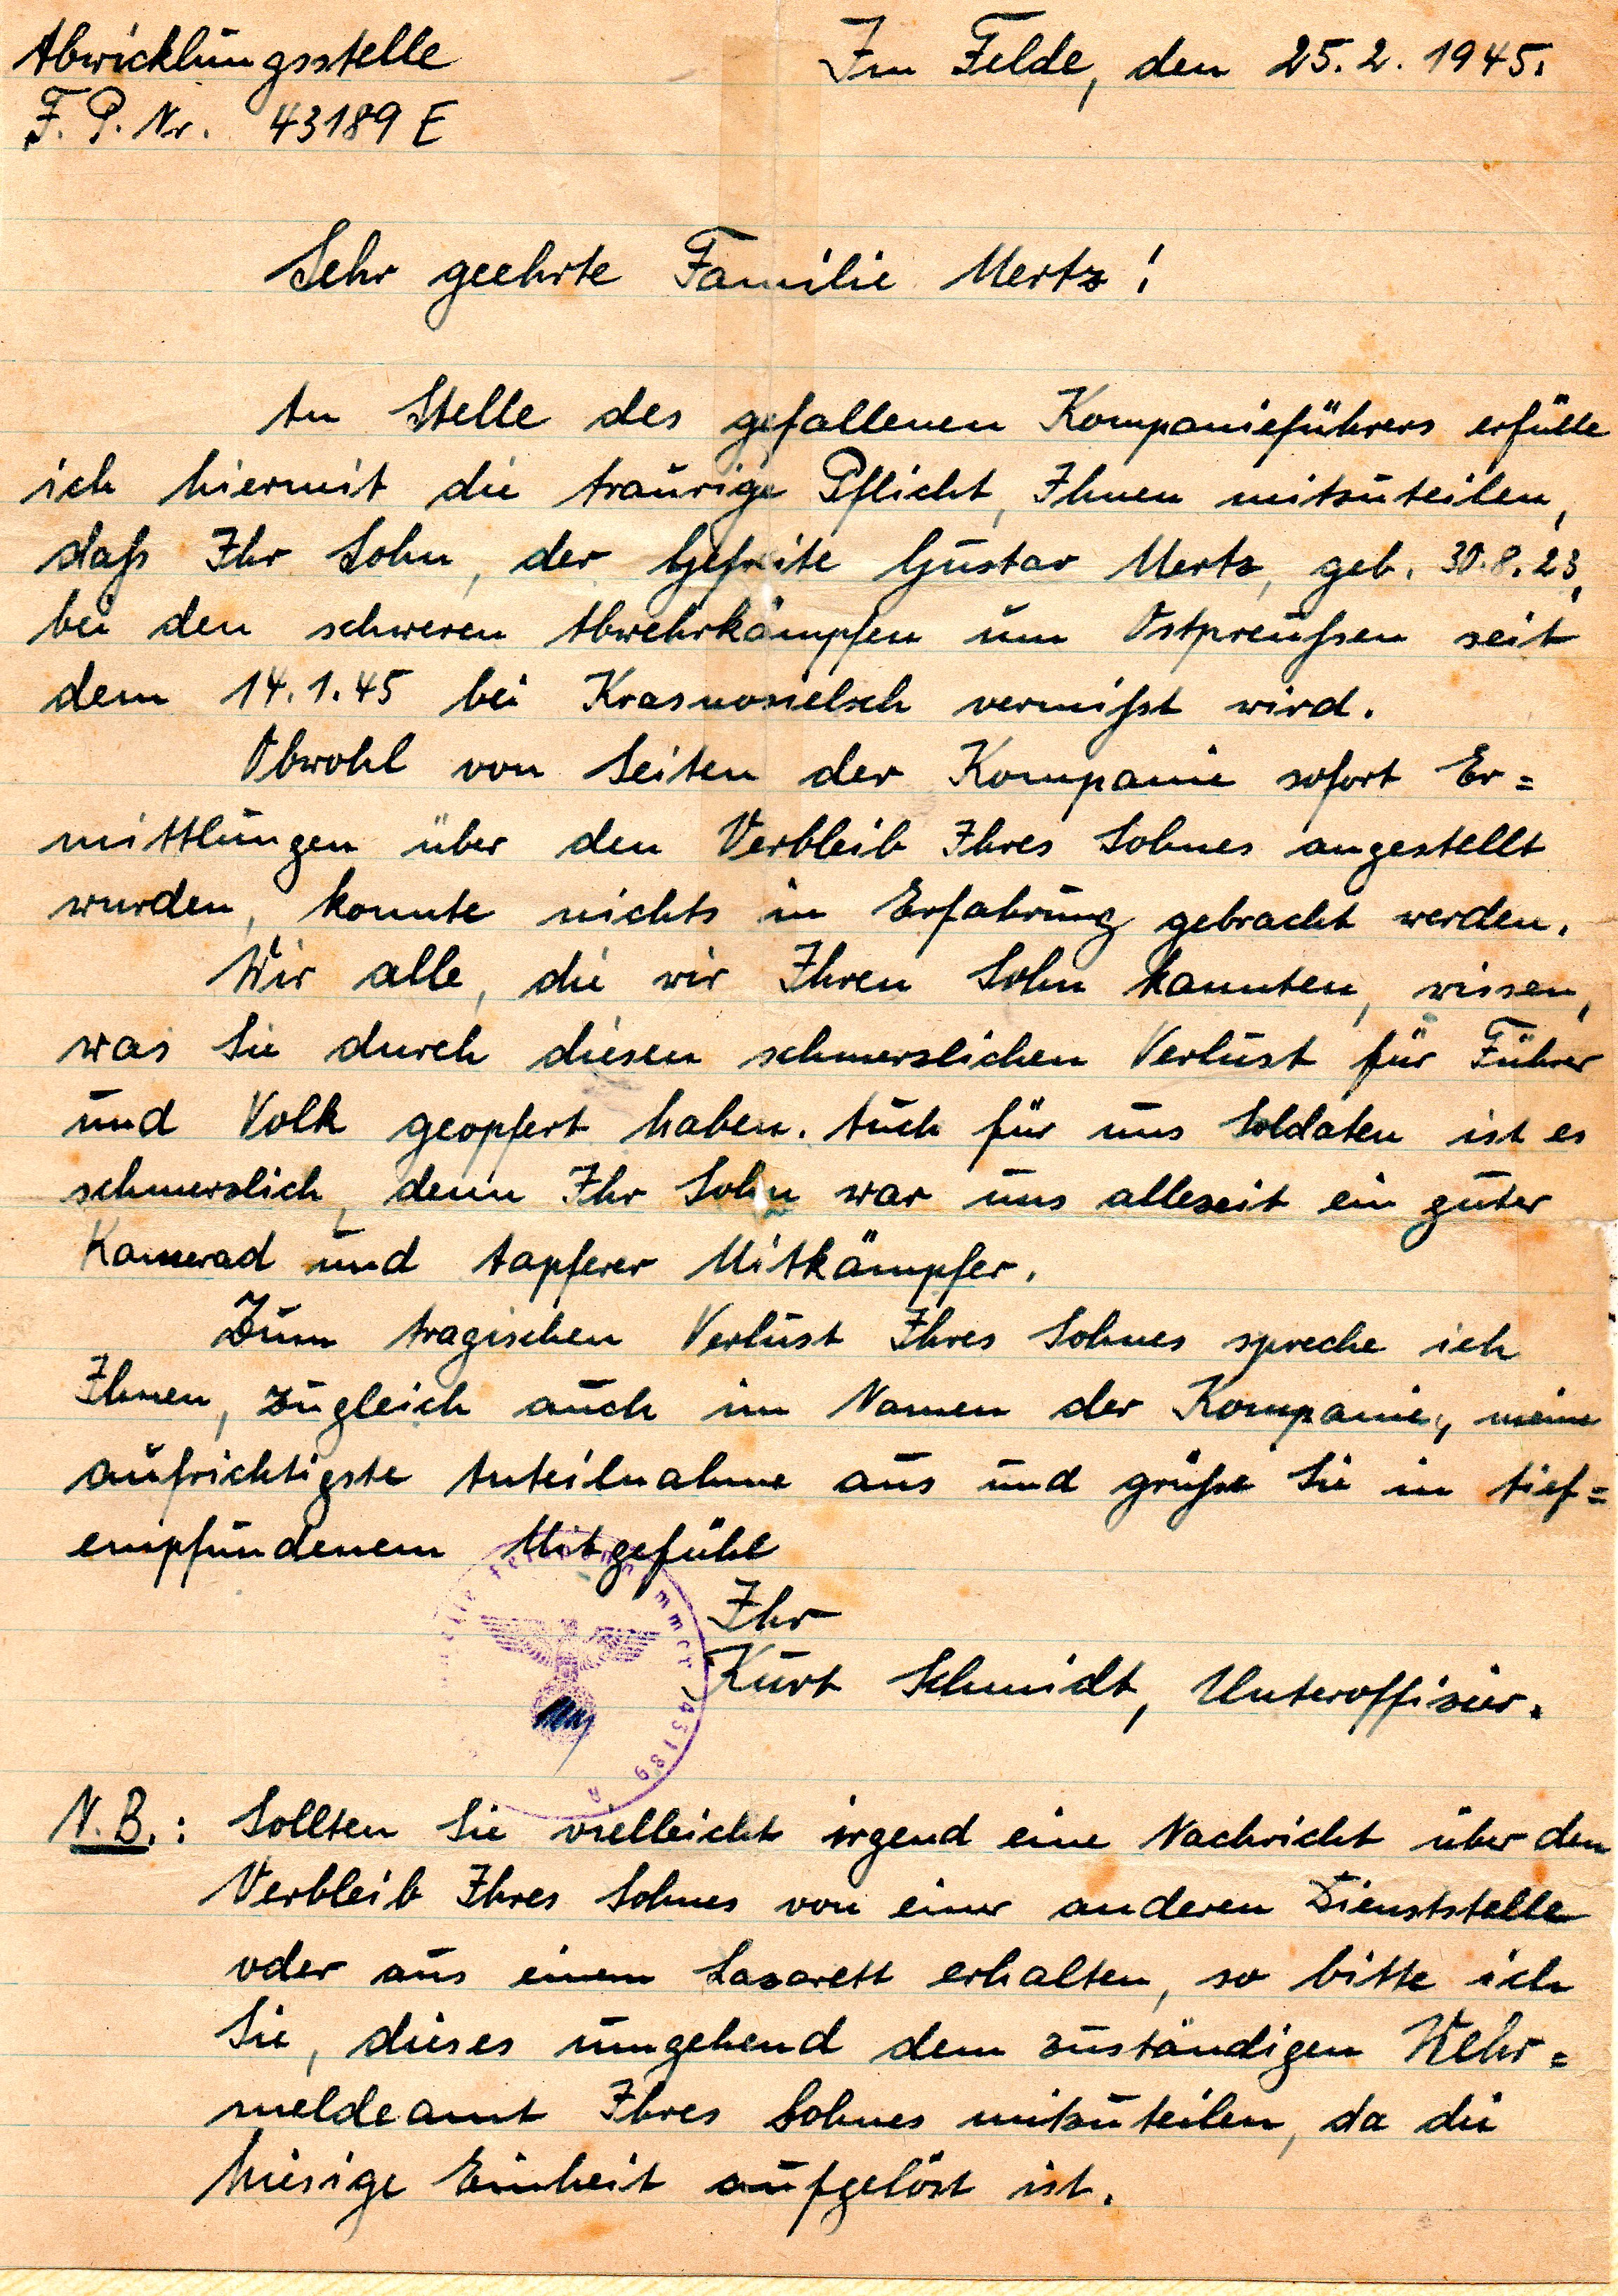 Abwicklungsstelle
F. P. Nr. 43189 E
Im Felde, den 25. 2. 1945.
Sehr geehrte Familie Mertz!
An Stelle des gefallenen Kompanieführers erfülle
ich hiermit die traurige Pflicht, Ihnen mitzuteilen,
daß Ihr Sohn, der Gefreite Gustav Mertz, geb. 30.8.23,
bei den schweren Abwehrkämpfen um Ostpreußen seit
dem 14.1.45 bei Krasnosielsch vermißt wird.
Obwohl von Seiten der Kompanie sofort Er=
mittlungen über den Verbleib Ihres Sohnes angestellt
wurden, konnte nichts in Erfahrung gebracht werden.
Wir alle, die wir Ihren Sohn kannten, wissen,
was Sie durch diesen schmerzlichen Verlust für Führer
und Volk geopfert haben. Auch für uns Soldaten ist es
schmerzlich, denn Ihr Sohn war uns allezeit ein guter
Kamerad und tapferer Mitkämpfer.
Zum tragischen Verlust Ihres Sohnes spreche ich
Ihnen, zugleich auch im Namen der Kompanie, meine
aufrichtigste Anteilnahme aus und grüße Sie in tief=
empfundenem Mitgefühl
Ihr
Kurt Schmidt, Unteroffizier.
43189
N.B.: Sollten Sie vielleicht irgend eine Nachricht über den
Verbleib Ihres Sohnes von einer anderen Dienststelle
oder aus einem Lazarett erhalten, so bitte ich
Sie, dieses umgehend dem zuständigen Wehr=
meldeamt Ihres Sohnes mitzuteilen, da die
hiesige Einheit aufgelöst ist.